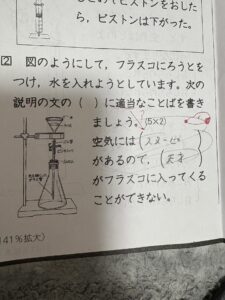 ら，ピストンは下がった。
2 図のようにして，フラスコにろうとを
つけ，水を入れようとしています。次の
説明の文の（　）に適当なことばを書き
ましょう。(5×2)
空気には（スペース
があるので，（
がフラスコに入ってくる
ことができない。
41%拡大〉